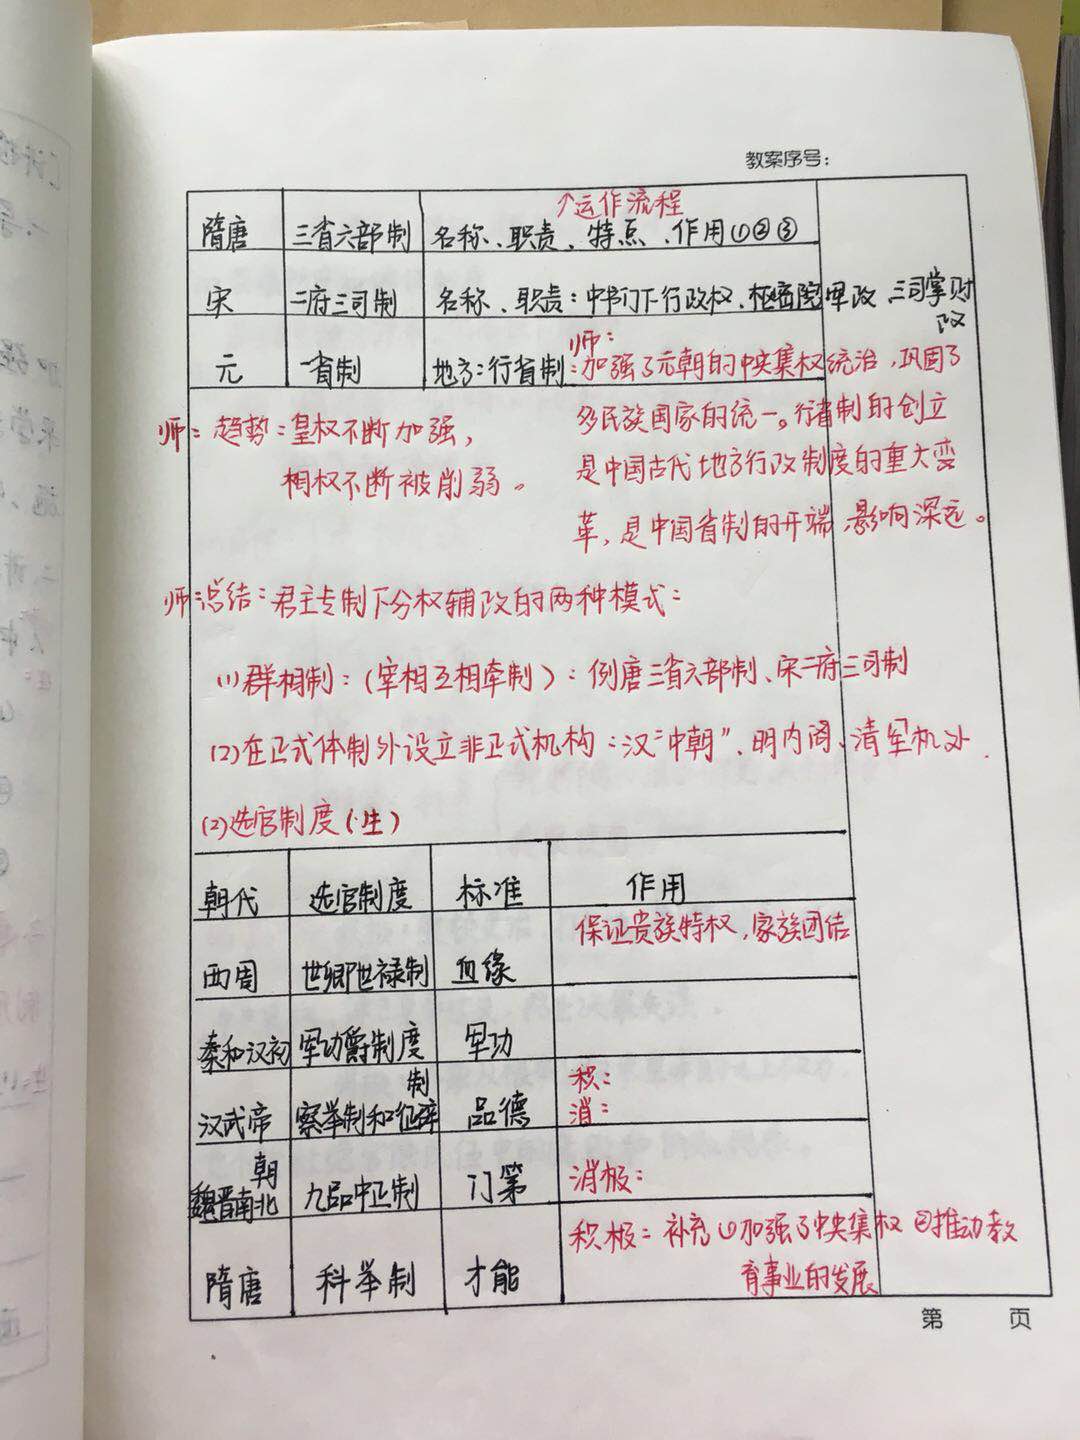 教案序号:
↑运作流程
隋唐 三省六部制 名称、职责、特点、作用①②③
宋 二府三司制 名称、职责:中书门下行政权、枢密院军政、三司掌财政
师:
元 一省制 地方:行省制:加强了元朝的中央集权统治,巩固了
师:趋势:皇权不断加强, 多民族国家的统一。行省制的创立
相权不断被削弱。 是中国古代地方行政制度的重大变
革,是中国省制的开端 影响深远。
师:总结:君主专制下分权辅政的两种模式:
(1)群相制:(宰相互相牵制):例唐三省六部制、宋二府三司制
(2)在正式体制外设立非正式机构:汉"中朝"、明内阁、清军机处.
(2)选官制度(生)
朝代 选官制度 标准 作用
西周 世卿世禄制 血缘 保证贵族特权,家族团结
秦和汉初 军功爵制度 军功
汉武帝 察举制和征辟制 品德 积:
消:
魏晋南北朝 九品中正制 门第 消极:
隋唐 科举制 才能 积极:补充①加强了中央集权②推动教
育事业的发展
第 页